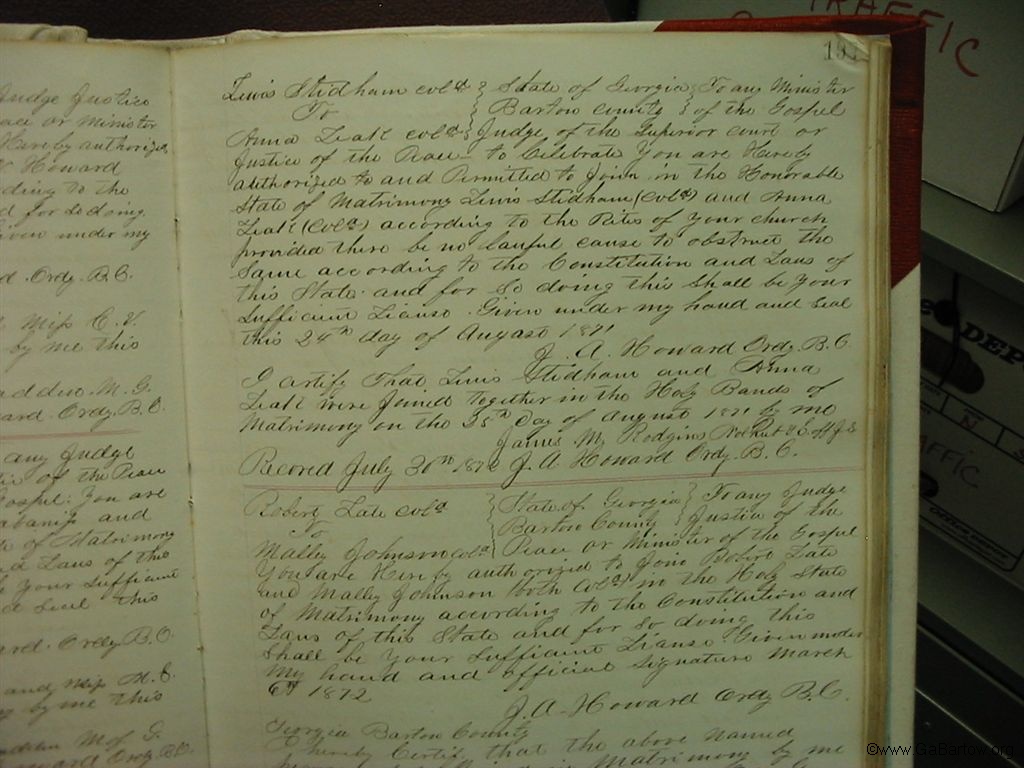 udge Justice
ace or Minister
Hereby authorized
Howard
ding to the
d for So doing
iven under my
d. Ordy. B.C.
Miss C. V.
by me this
M. G.
ard. Ordy. B.C.
any Judge
of the Peace
Gospel: You are
and
of Matrimony
Laws of this
Your Sufficient
Seal this
ard. Ordy B.C.
and Miss M. E.
by me this
M of G.
ward Ordy B.C.
193
Lewis Stidham cold } State of Georgia } To any Minister
To } Bartow County } of the Gospel
Anna Leak cold } Judge of the Superior court or
Justice of the Peace to Celebrate You are Hereby
authorized to and Permitted to Join in the Honorable
State of Matrimony Lewis Stidham (Cold) and Anna
Leak (Cold) according to the Rites of your church
provided there be no lawful cause to obstruct the
Same according to the Constitution and Laws of
this State and for So doing this Shall be Your
Sufficient License. Given under my hand and Seal
this 24th day of August 1871
J. A. Howard Ordy. B.C.
I certify That Lewis Stidham and Anna
Leak were Joined Together in the Holy Bands of
Matrimony on the 25th Day of August 1871 by me
James M. Rodgins
Recored July 30th 1872 J. A. Howard Ordy. B.C.
Robert Late cold } State of Georgia } To any Judge
To } Bartow County } Justice of the
Malley Johnson cold } Peace or Minister of the Gospel
You are Hereby authorized to Join Robert Late
and Malley Johnson (both Cold) in the Holy State
of Matrimony according to the Constitution and
Laws of this State and for So doing this
Shall be Your Sufficient License Given under
My hand and official Signature March
6th 1872
J. A. Howard Ordy B.C.
Georgia Bartow County
I hereby Certify that the above named
Matrimony by me
TRAFFIC
DEP
N
AFFIC
©www.GaBartow.org